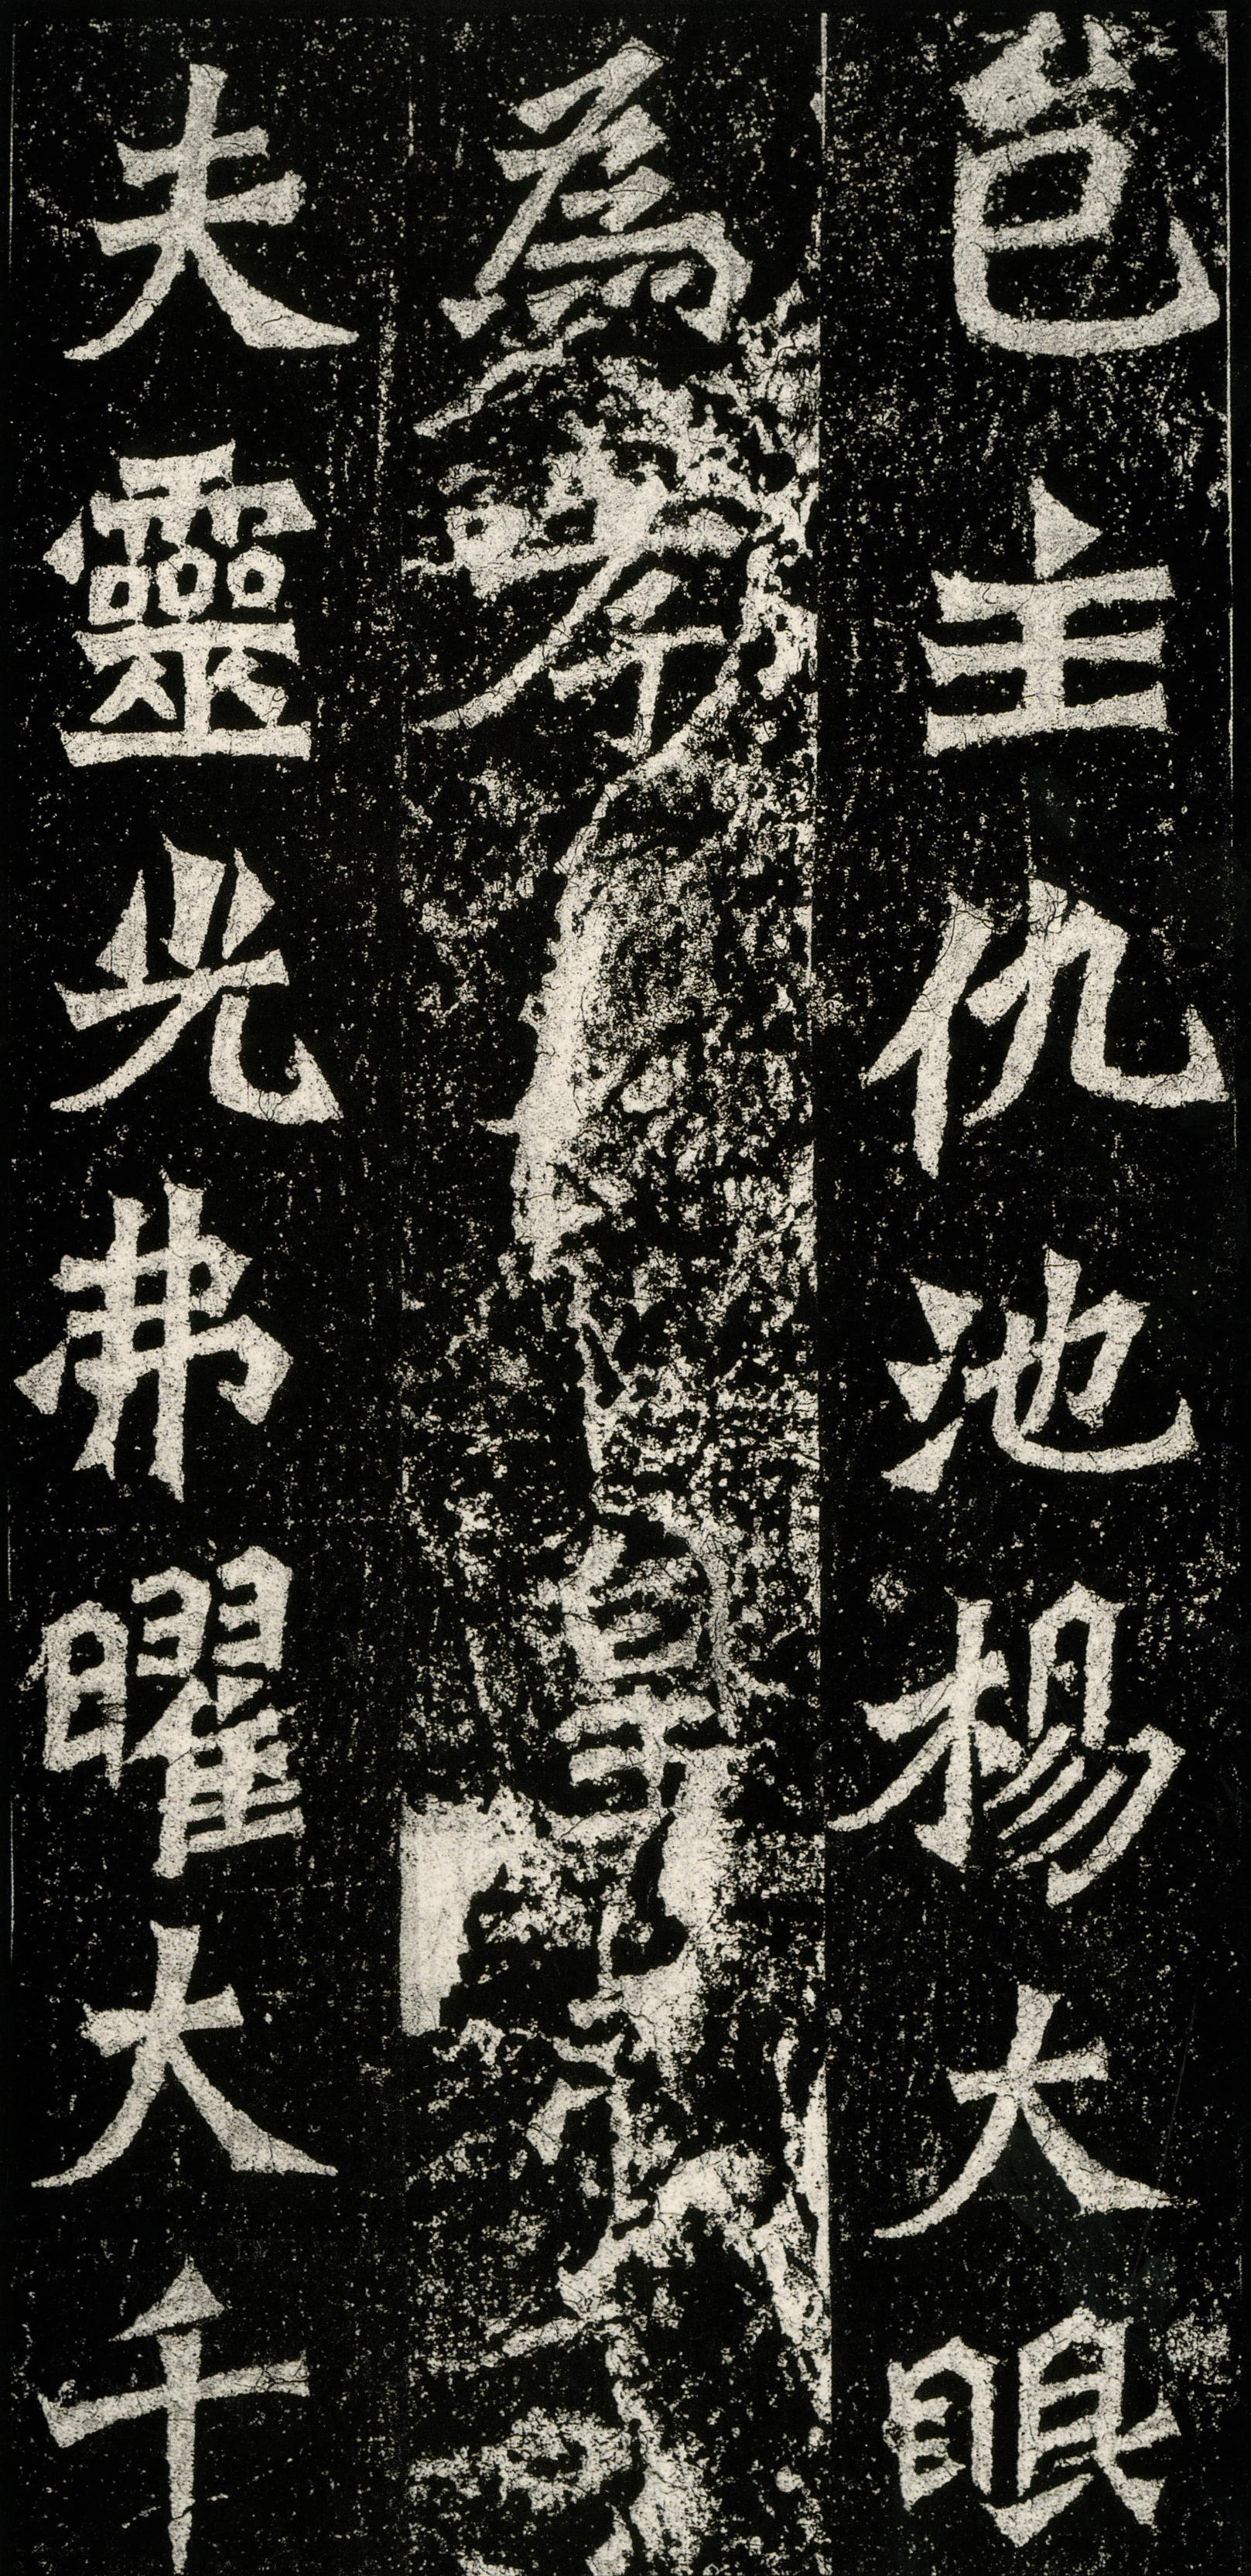 邑主仇池楊大眼
為孝皇帝
夫靈光弗曜大千